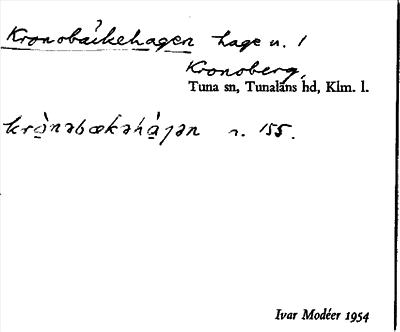 Kronobäckehagen hage u. 1
Kronoberg,
Tuna sn, Tunaläns hd, Klm. l.
krò̱nəbækəhà̱gən r. 155.
Ivar Modéer 1954